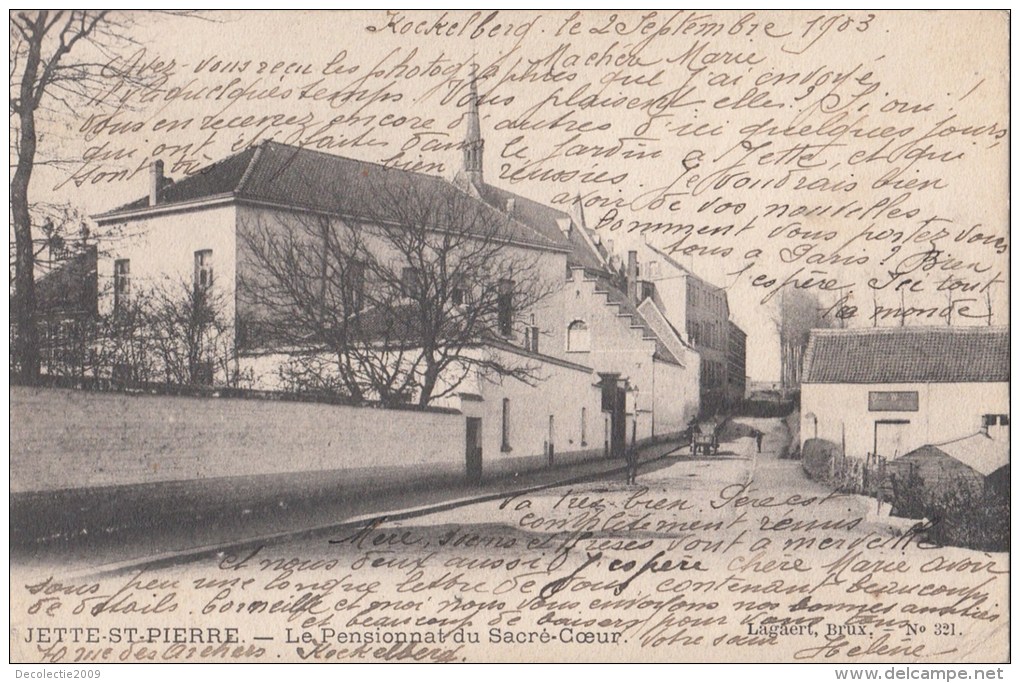 Kockelberg. le 2 Septembre 1903
Ma chère Marie
Avez-vous reçu les photographies que j'ai envoyé
il y a quelques temps. Vous plaisent elles? Si oui!
Vous en recevrez encore d'autres d'ici quelques jours
qui ont été faites dans le jardin à Jette, et qui
sont très bien réussies. Je voudrais bien
avoir de vos nouvelles
Comment vous portez vous
tous à Paris? Bien
j'espère. Ici tout
le monde
va très bien Père est
complètement rémis
Mère, soeurs et frères vont à merveille
et nous deux aussi. J'espère chère Marie avoir
sous peu une longue lettre de vous contenant beaucoup
de détails. Corneille et moi nous vous envoyons nos bonnes amitiés
et beaucoup de baisers pour vous tous
Votre sœur
Hélène
70 rue des Archers. Kockelberg.
JETTE-ST-PIERRE. — Le Pensionnat du Sacré-Cœur.
Lagaert, Brux. — No 321.
Decolectie2009
www.delcampe.net